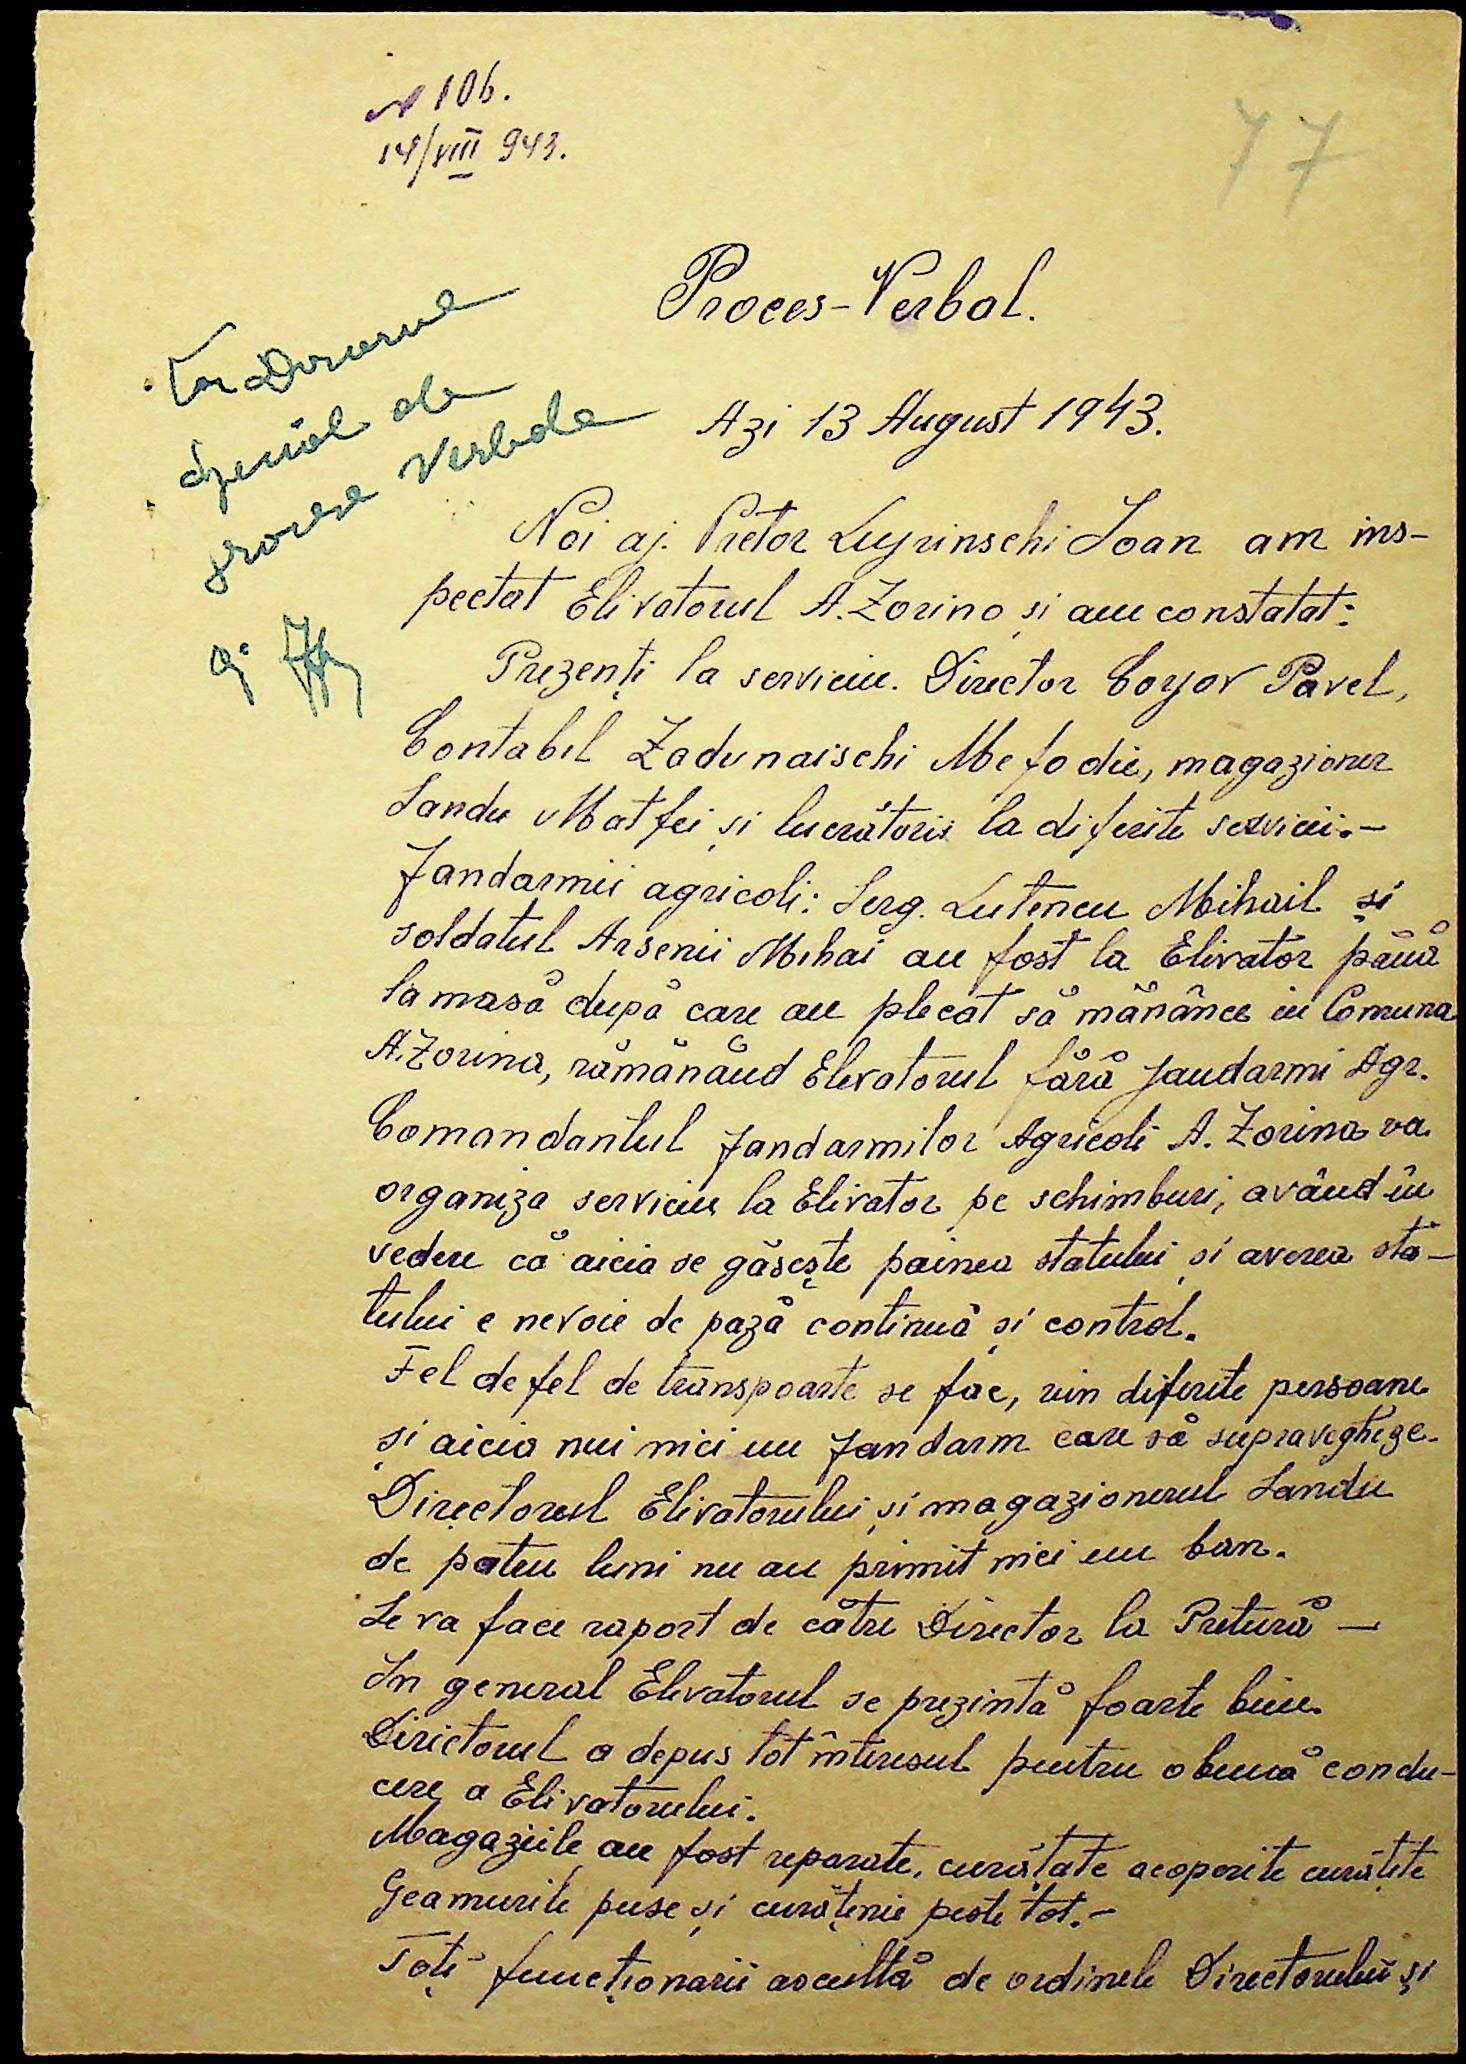 № 106.
14/VIII 943.
77
Proces-Verbal.
Azi 13 August 1943.
procese Verbale
Noi aj. Pretor Luprinschi Ioan am ins-
pectat Elivatorul A. Zorino și am constatat:
Prezenți la serviciu. Director Coșov Pavel,
Contabil Zadunaischi Mefodie, magazioner
Sandu Matfei și lucrătorii la diferite servicii.-
Jandarmii agricoli: Serg. Lutencu Mihail și
soldatul Arsenii Mihai au fost la Elivator până
la masă după care au plecat să mănânce în Comuna
A. Zorina, rămănând Elevatorul fără jandarmi Agr.
Comandantul Jandarmilor Agricoli A. Zorina va
organiza serviciu la Elivator pe schimburi, având în
vedere că aicia se găsește painea statului și averea sta-
tului e nevoie de pază continuă și control.
Fel de fel de transpoarte se fac, vin diferite persoane
și aicia nui nici un jandarm care să supravegheze.
Directorul Elivatorului și magazionerul Sandu
de patru luni nu au primit nici un ban.
Se va face raport de către Director la Pretură —
In general Elevatorul se prezintă foarte bine.
Directorul a depus tot interesul pentru o bună condu-
cere a Elivatorului.
Magaziile au fost reparate, curățate acoperite curățite
Geamurile puse și curățenie peste tot.-
Toți funcționarii ascultă de ordinele Directorului și